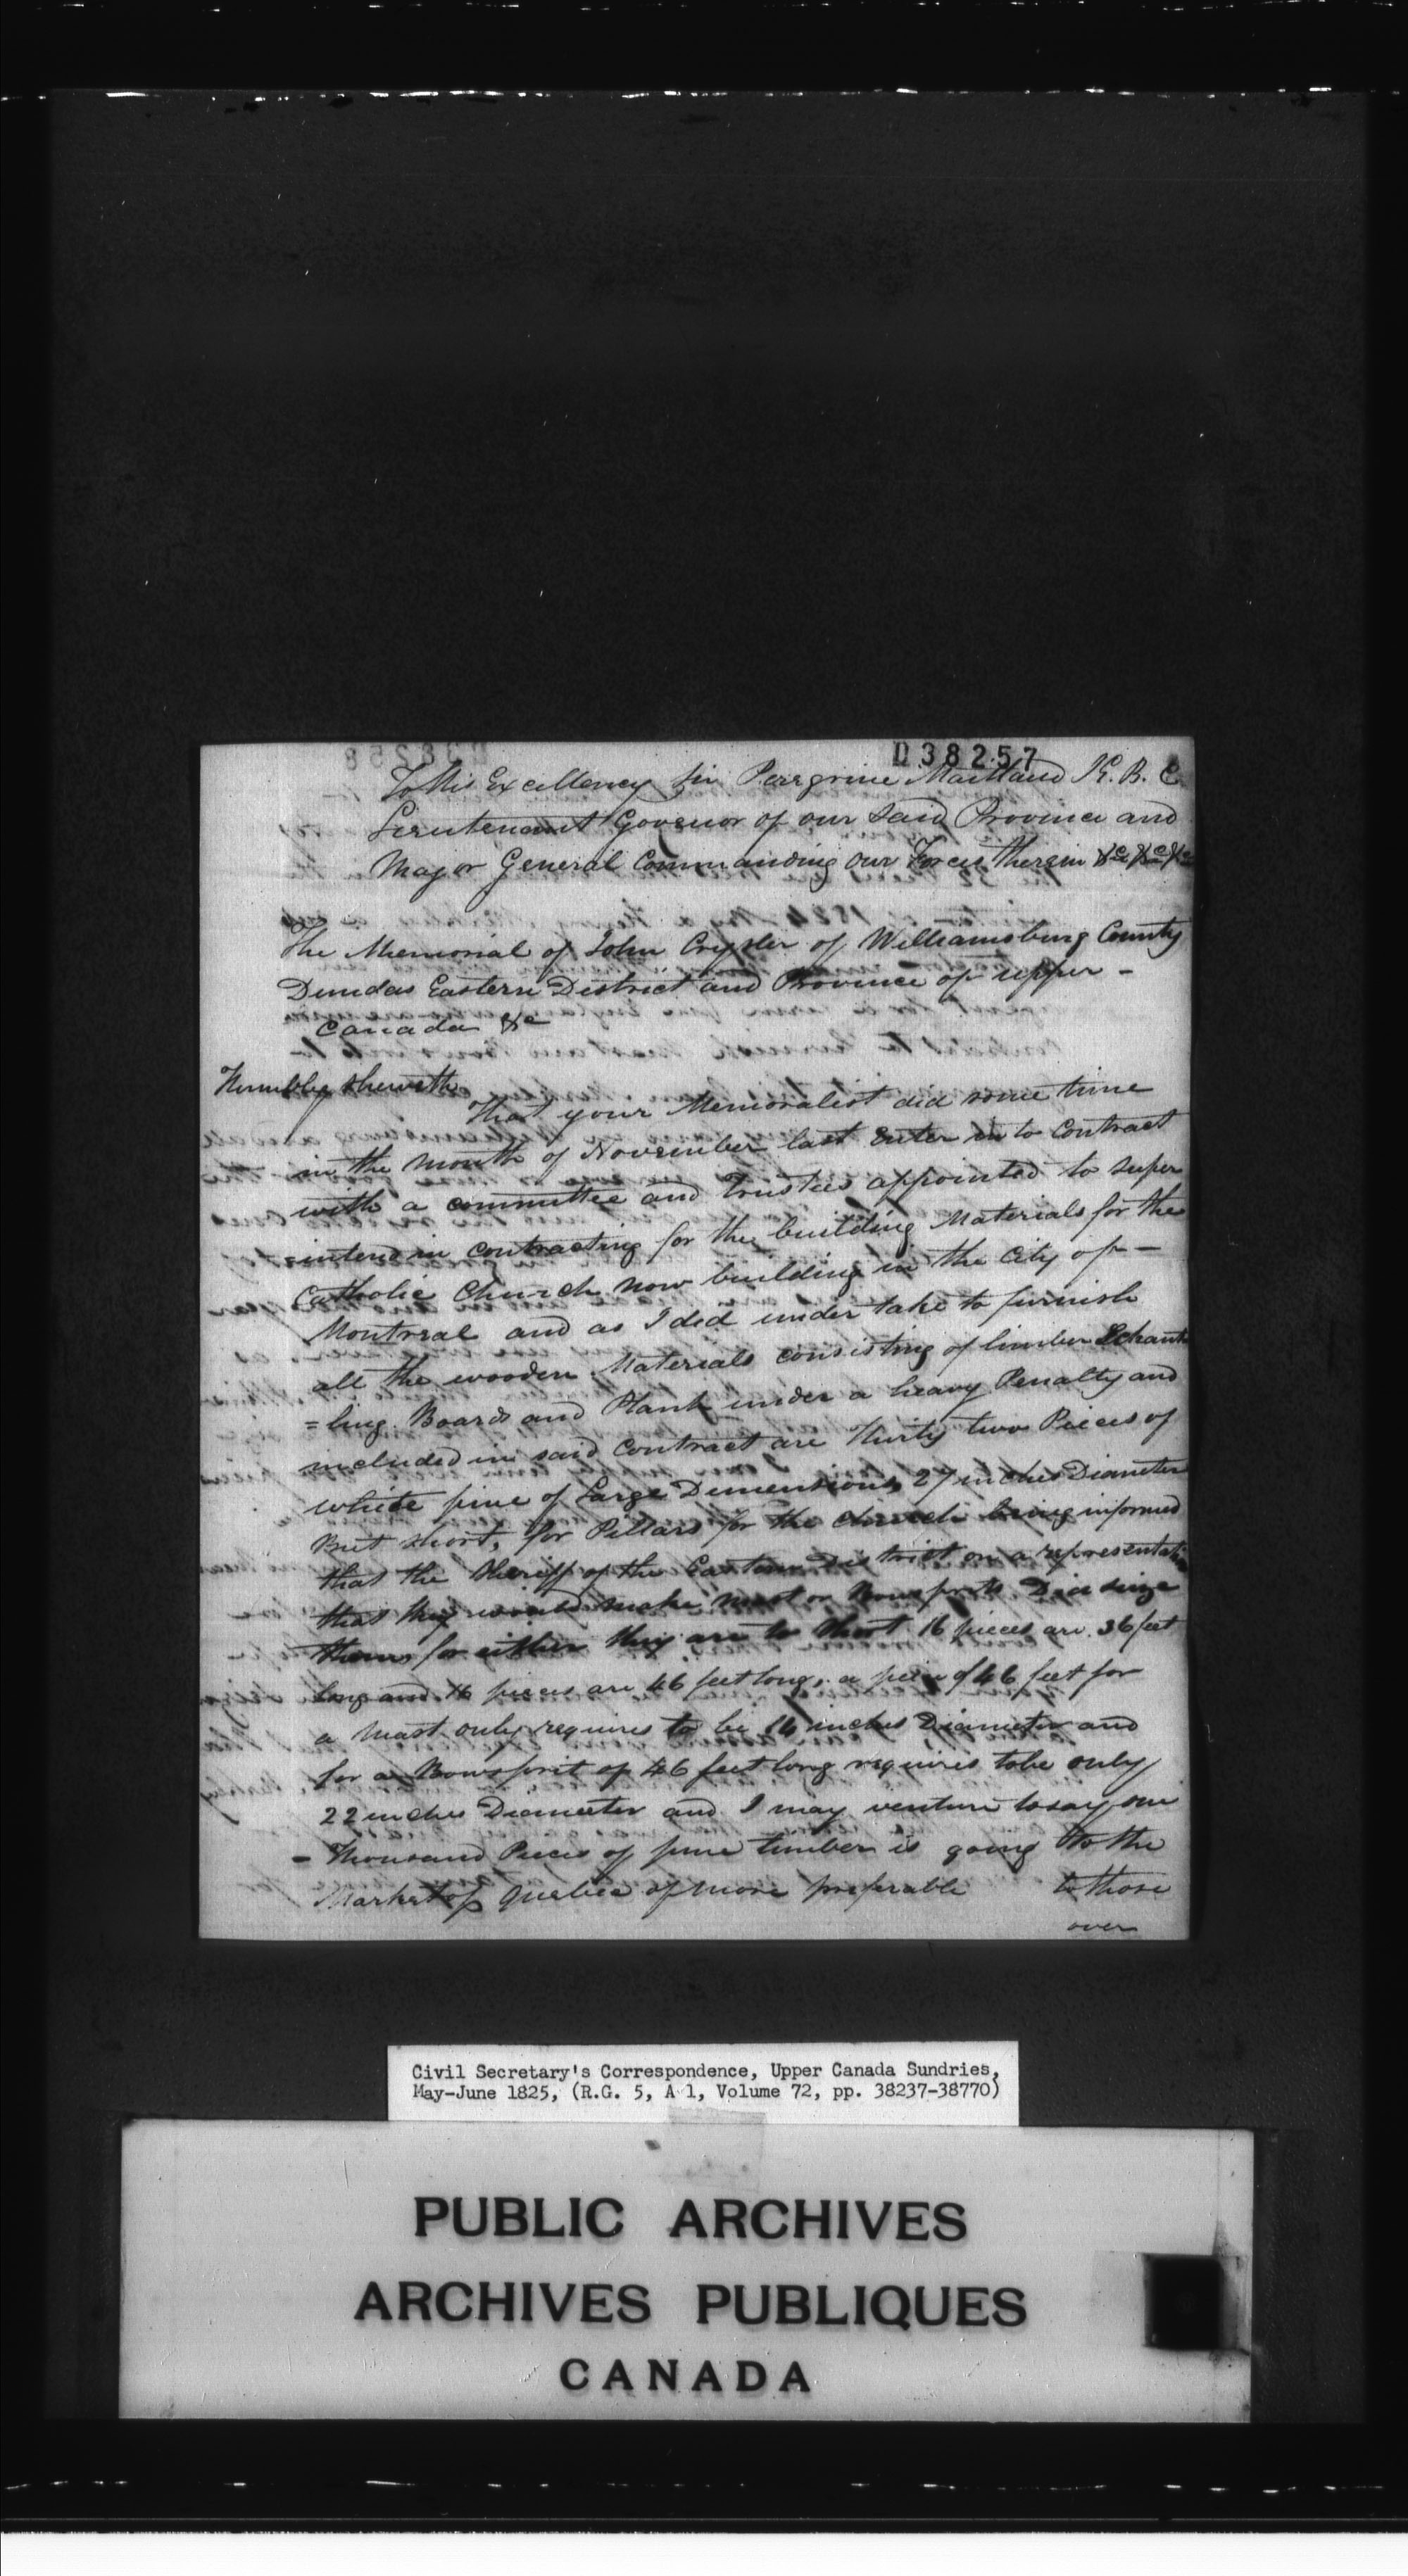 D38257
To His Excellency Sir Peregrine Maitland K. B. C
Lieutenant Govenor of our Said Province and
Major General Commanding our Forces therein &c &c &c
The Memorial of John Crysler of Williamsburg County
Dundas Eastern District and Province of upper -
Canada &c
Humbly Sheweth
That your Memoralist did some time
in the Month of November last Enter in to Contract
with a committee and Trustees appointed to Super
=intend in contracting for the building Materials for the
Catholic Church now building in the City of -
Montreal and as I did under take to furnish
all the wooden Materials consisting of timber Schant
=ling Boards and Plank under a heavy Penalty and
included in said Contract are Thirty two Pieces of
white pine of Large Demensions 27 inches Diameter
But short, for Pillars for the Church being informed
that the Sheriff of the Eastern District on a representation
that they would make mast or Bowsprits Did seize
them for either they are to Short 16 pieces are 36 feet
long and 16 pieces are 46 feet long, a peice of 46 feet for
a mast only requires to be 14 inches Diameter and
for a Bowsprit of 46 feet long requires to be only
22 inches Diameter and I may venture to say one
- Thousand Pieces of pine timber is going to the
Market of Quebec of more preferable to those
over
Civil Secretary's Correspondence, Upper Canada Sundries,
May-June 1825, (R.G. 5, A 1, Volume 72, pp. 38237-38770)
PUBLIC ARCHIVES
ARCHIVES PUBLIQUES
CANADA